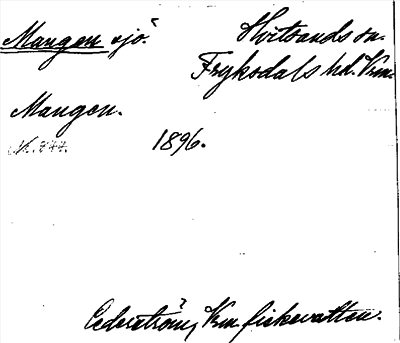 Mangen sjö.
Hvitsands sn.
Frykedals hd. Vrm.
Mangen.
1896.
Cederström, Vrm fiskevatten.